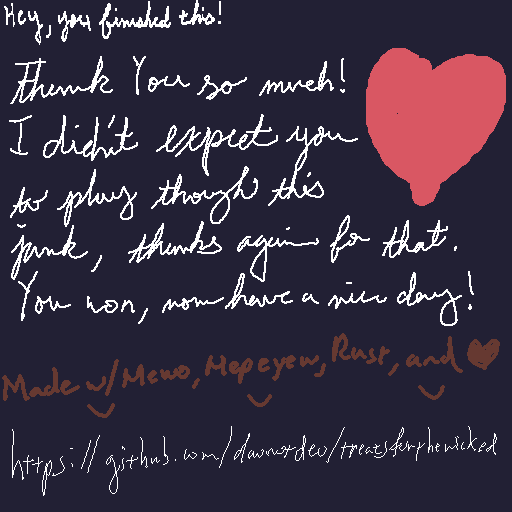 Hey, you finished this!
Thank You so much!
I didn't expect you
to play though this
junk, thanks again for that.
You won, now have a nice day!
Made w/ Mewo, Mepeyew, Rust, and ❤
https://github.com/davnotdev/treatsforthewicked